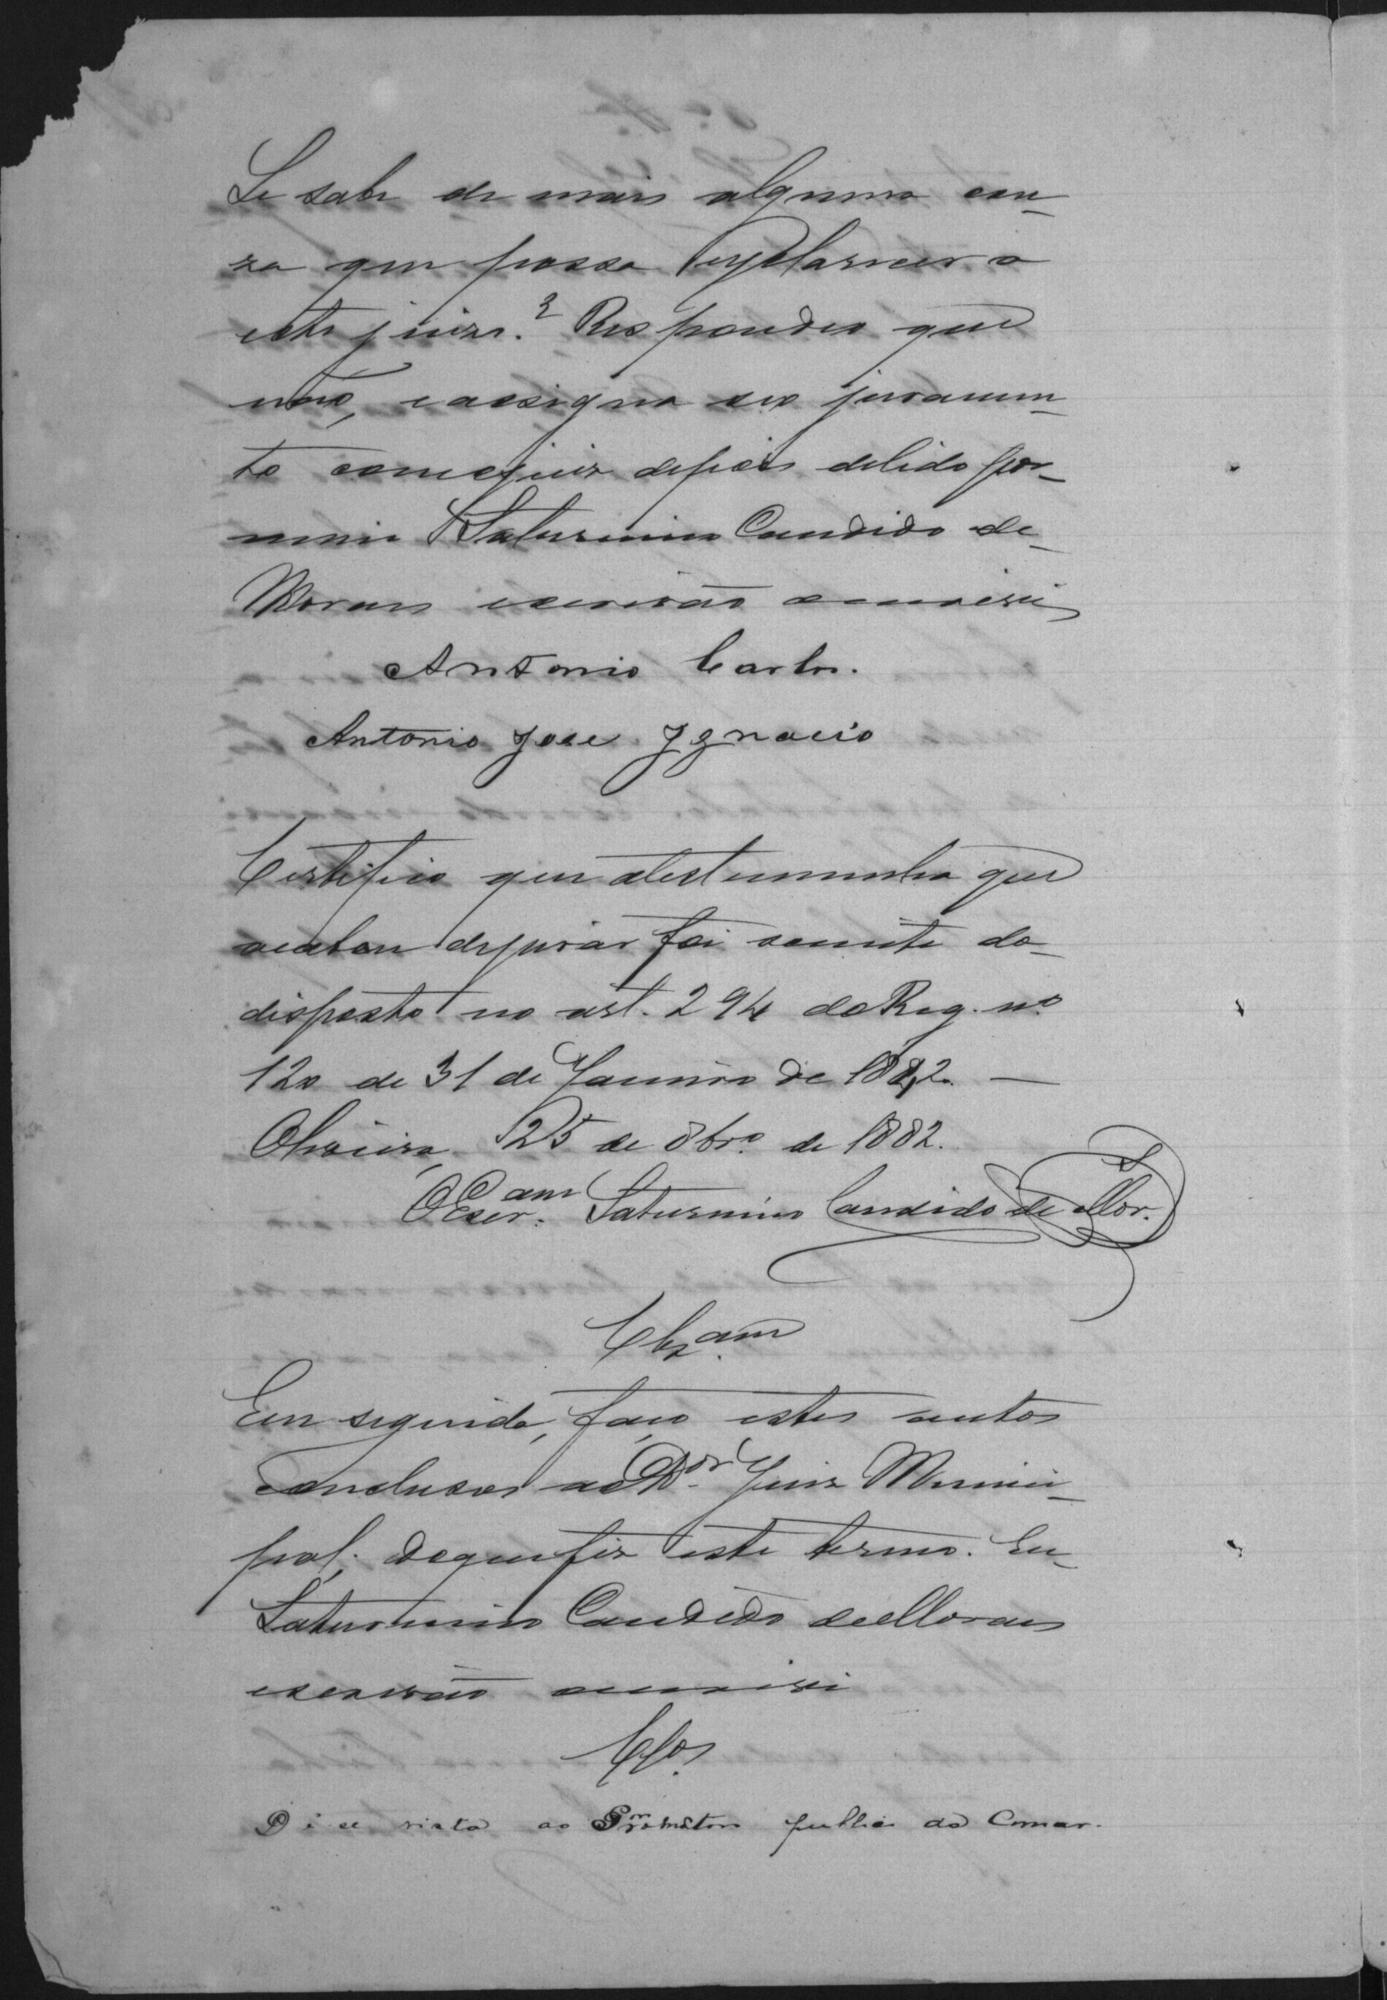 Se sabe de mais alguma cou-
za que possa esclarecer a
este juizo? Respondeo que
não, e assigna seo juramen-
to com o juiz depois de lido por
mim Saturnino Candido de
Moraes escrivão o escrevi
Antonio Carlos.
Antonio Jose Ignacio
Certifico que a testemunha que
acabou de jurar foi sciente do
disposto no art. 294 do Reg. nº
120 de 31 de Janeiro de 1842. —
Oliveira, 25 de 8brº de 1882.
O Escram. Saturnino Candido de Mor.
Clzam
Em seguida, faço estes autos
conclusos ao Dor. Juiz Munici-
pal; do que fiz este termo. Eu
Saturnino Candido de Moraes
escrivão o escrevi
Clos
Dê se vista ao Promotor publico da Comar.